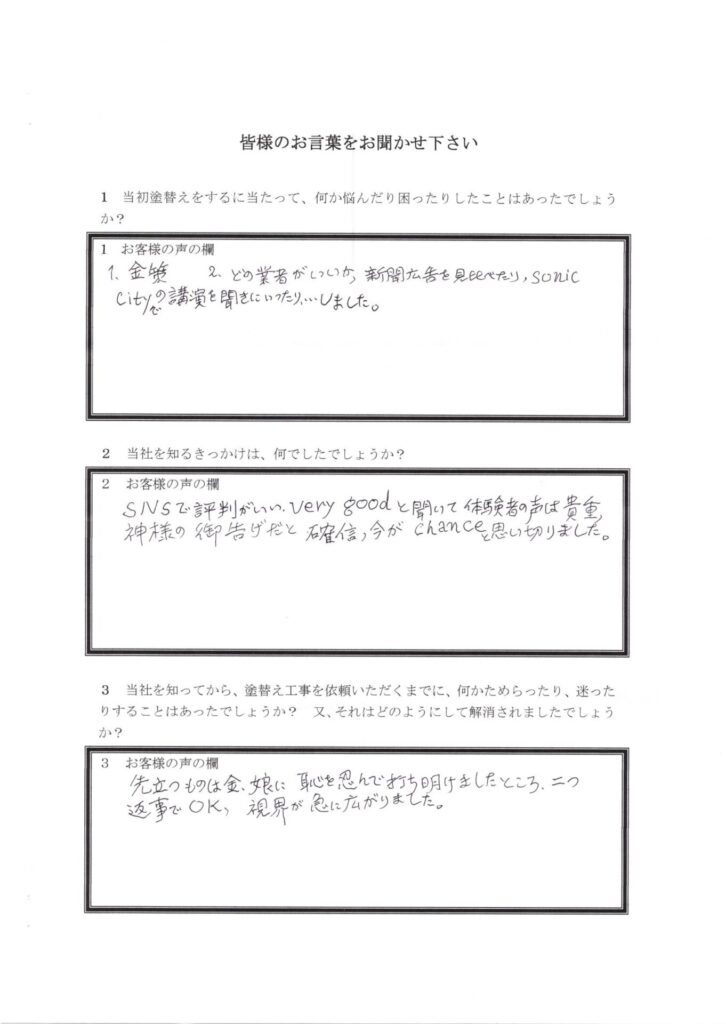 皆様のお言葉をお聞かせ下さい
1 当初塗替えをするに当たって、何か悩んだり困ったりしたことはあったでしょう
か?
1 お客様の声の欄
1、金策 2、どの業者がいいか、新聞広告を見比べたり、sonic
cityでの講演を聞きにいったり、…しました。
2 当社を知るきっかけは、何でしたでしょうか?
2 お客様の声の欄
SNSで評判がいい、very goodと聞いて体験者の声は貴重、
神様の御告げだと確信、今がchanceと思い切りました。
3 当社を知ってから、塗替え工事を依頼いただくまでに、何かためらったり、迷った
りすることはあったでしょうか? 又、それはどのようにして解消されましたでしょう
か?
3 お客様の声の欄
先立つものは金、娘に恥を忍んで打ち明けましたところ、二つ
返事でOK、視界が急に広がりました。